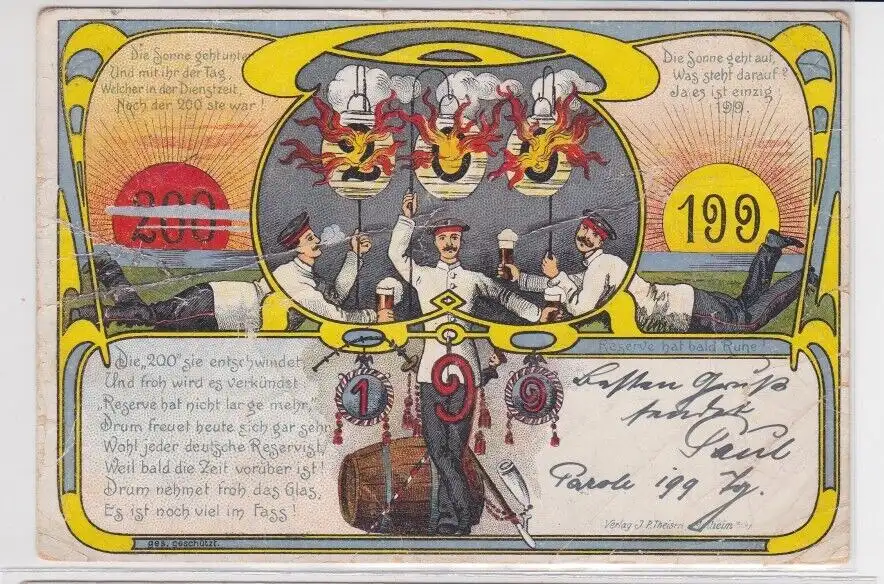 Die Sonne geht unte
Und mit ihr der Tag,
Welcher in der Dienstzeit,
Noch der 200 ste war!
Die Sonne geht auf,
Was steht darauf?
Ja es ist einzig
199.
200
200
199
Reserve hat bald Ruhe!
Die „200“ sie entschwindet,
Und froh wird es verkündst
„Reserve hat nicht lange mehr,“
Drum freuet heute sich gar sehr
Wohl jeder deutsche Reservist,
Weil bald die Zeit vorüber ist!
Drum nehmet froh das Glas,
Es ist noch viel im Fass!
1 9 9
besten Gruß
sendet
Paul
Parole 199 Tg.
Verlag J. P. Theisen
ges. geschützt.